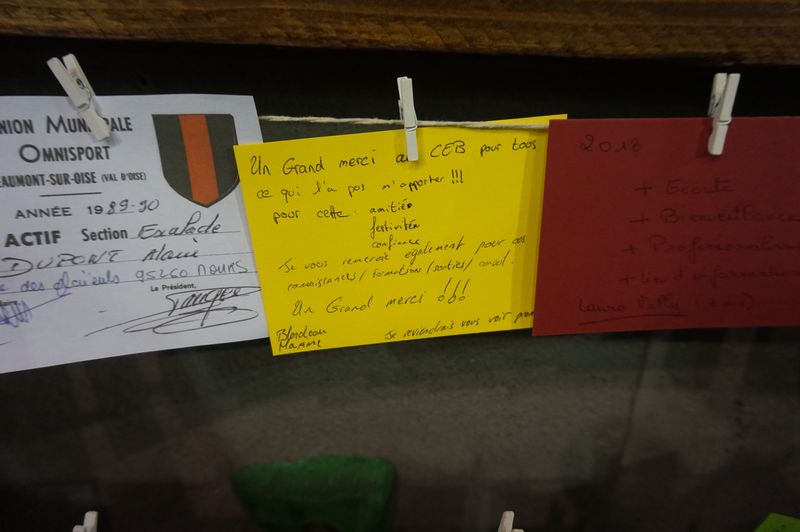 NION MUNICIPALE
OMNISPORT
EAUMONT-SUR-OISE (VAL D'OISE)
ANNÉE 1989-90
ACTIF Section Escalade
DUPONT Alain
des 95260 MOURS
Le Président,
Un Grand merci au CEB pour tous
ce qui l'a pas m'apporter !!!
pour cette. amitiée
festivitée
confiance
Je vous remercie également pour ces
connaissances/formations/sorties/conseil.
Un Grand merci !!!
Blondeau
Maxime
Je reviendrais vous voir
2013
+ Ecoute
+ Bienveillance
+ Professionnalisme
+ Lieu d'information
Laura